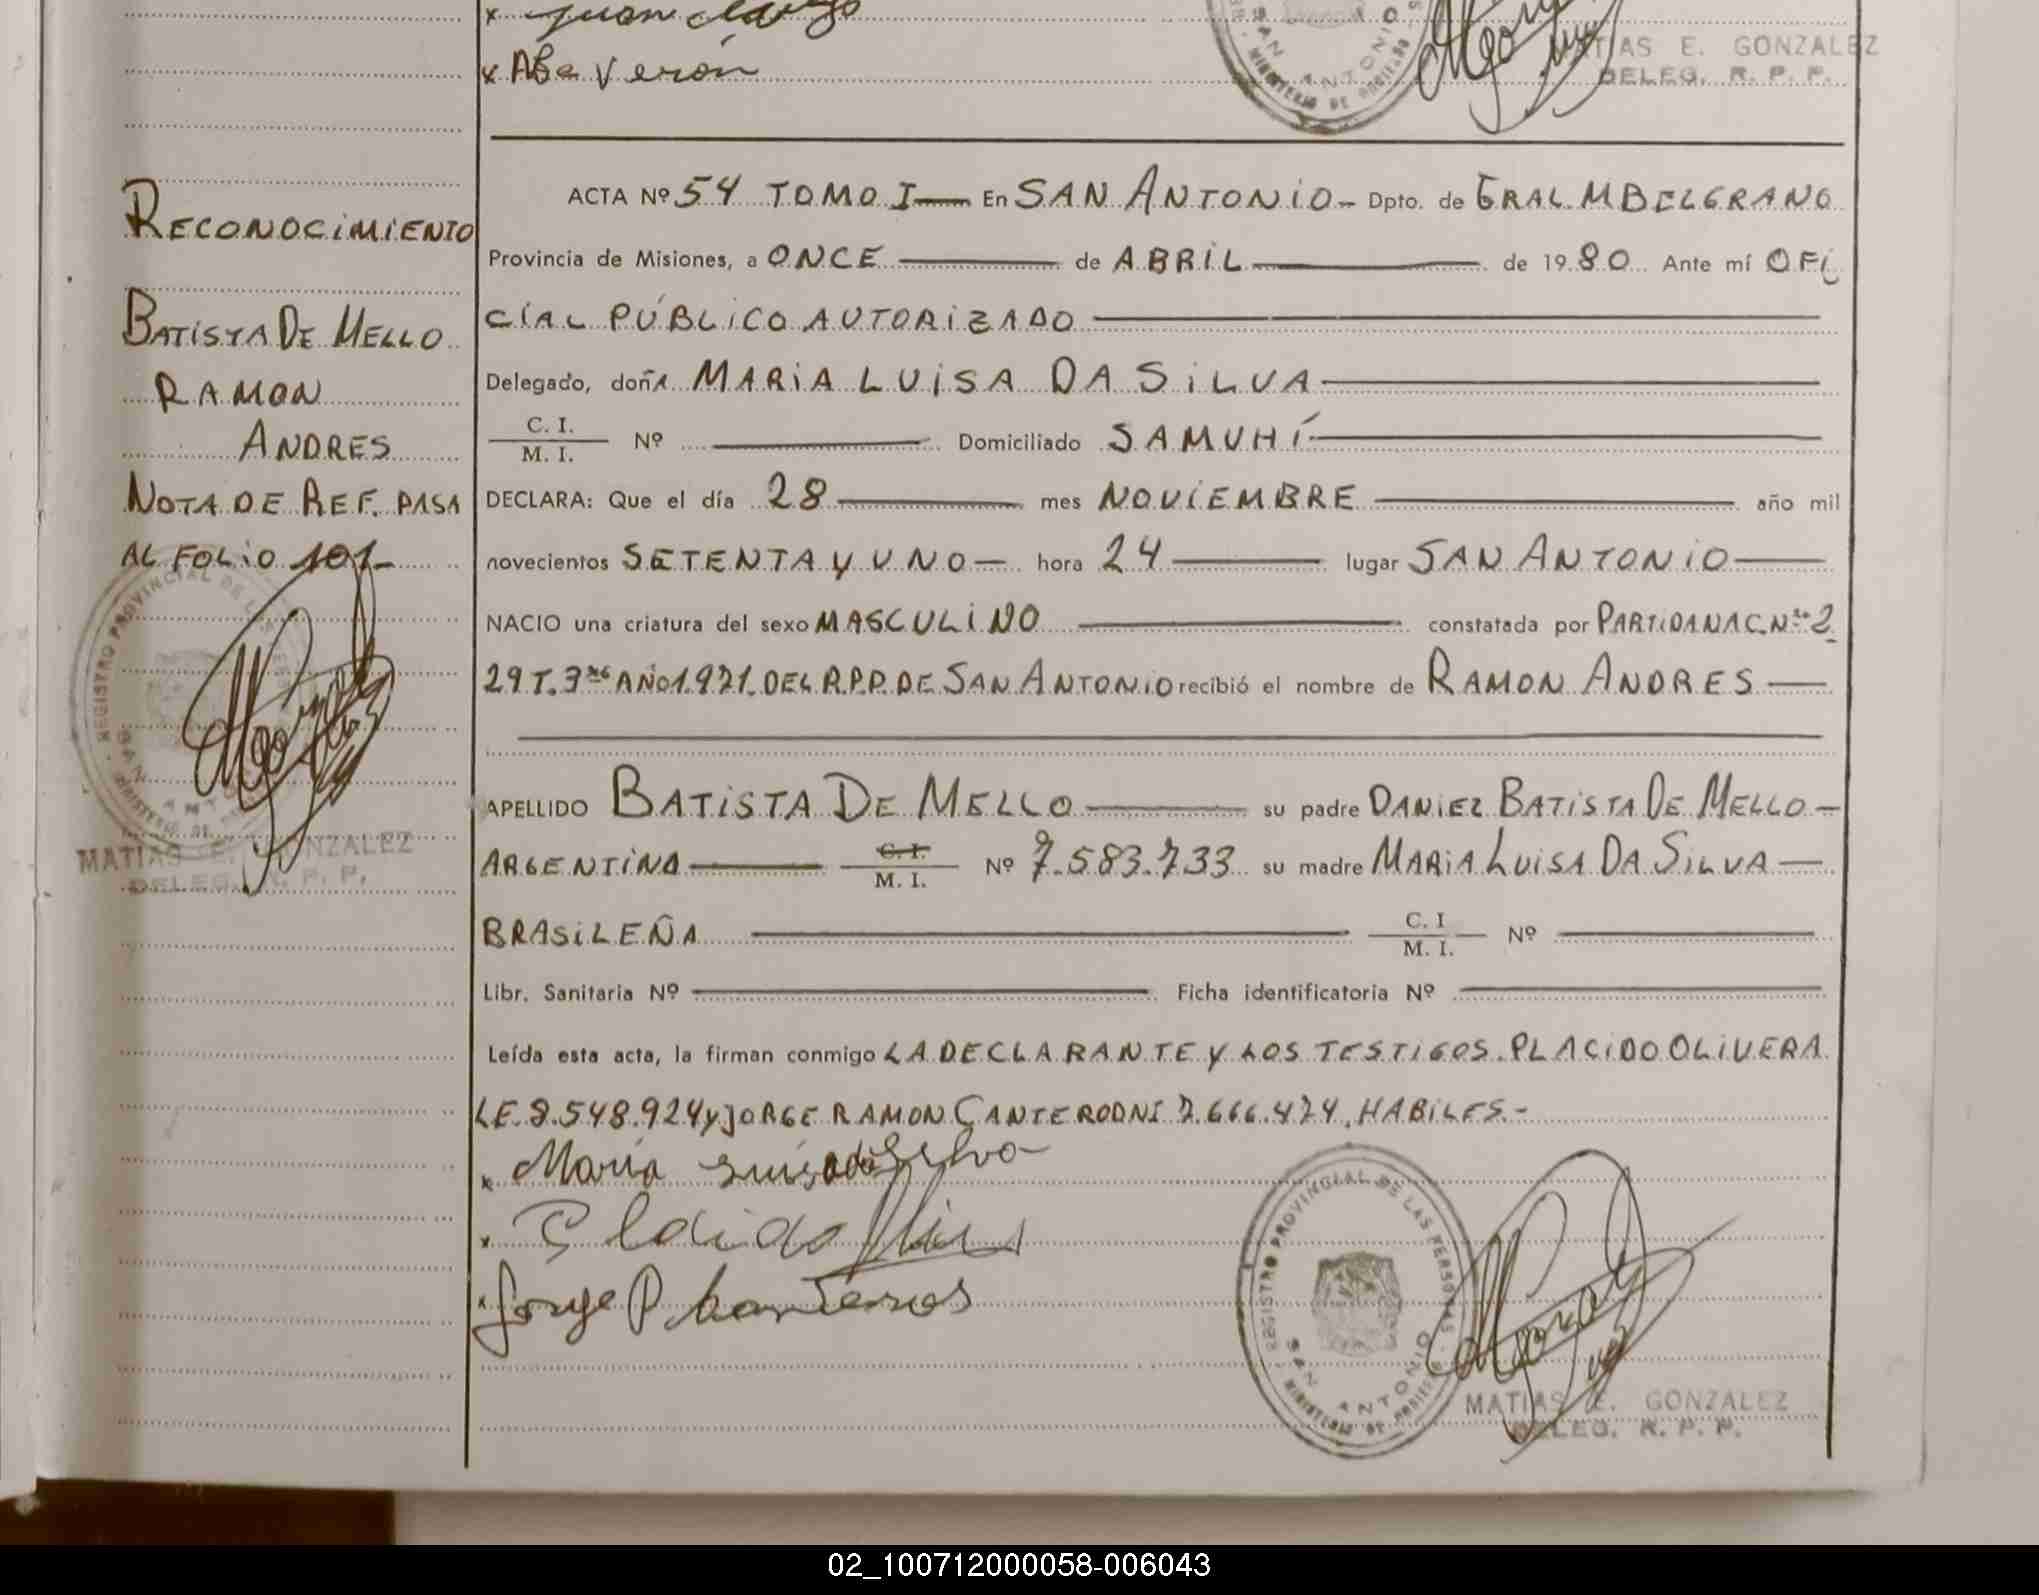 x Juan
x Aba Verón
SAN ANTONIO
MINISTERIO DE
MATIAS E. GONZALEZ
DELEG. R. P. P.
RECONOCIMIENTO
BATISTA DE MELLO
RAMON
ANDRES
NOTA DE REF. PASA
AL FOLIO 101-
REGISTRO PROVINCIAL DE
MATIAS E. GONZALEZ
DELEG. R. P. P.
ACTA Nº 54 TOMO I — En SAN ANTONIO - Dpto. de GRAL. M BELGRANO
Provincia de Misiones, a ONCE — de ABRIL — de 1980 Ante mí OFI
CIAL PÚBLICO AUTORIZADO —
Delegado, doña MARIA LUISA DA SILVA —
C. I.
M. I. Nº — Domiciliado SAMUHÍ —
DECLARA: Que el día 28 — mes NOVIEMBRE — año mil
novecientos SETENTA Y UNO — hora 24 — lugar SAN ANTONIO —
NACIO una criatura del sexo MASCULINO — constatada por PARTIDA NAC. Nº 2
29 T. 3ro AÑO 1.971. DEL R.P.P. DE SAN ANTONIO recibió el nombre de RAMON ANDRES —
APELLIDO BATISTA DE MELLO — su padre DANIEL BATISTA DE MELLO —
ARGENTINO — C. I. M. I. Nº 7.583.733 su madre MARIA LUISA DA SILVA —
BRASILEÑA — C. I M. I. Nº —
Libr. Sanitaria Nº — Ficha identificatoria Nº —
Leída esta acta, la firman conmigo LA DECLARANTE Y LOS TESTIGOS. PLACIDO OLIVERA
LE. 8.548.924 y JORGE RAMON CANTERO DNI 7.666.474, HABILES.-
x María Luisa da Silva
x Placido
x Jorge R
REGISTRO PROVINCIAL DE LAS PERSONAS
SAN ANTONIO
MINISTERIO DE
MATIAS E. GONZALEZ
DELEG. R. P. P.
02_100712000058-006043